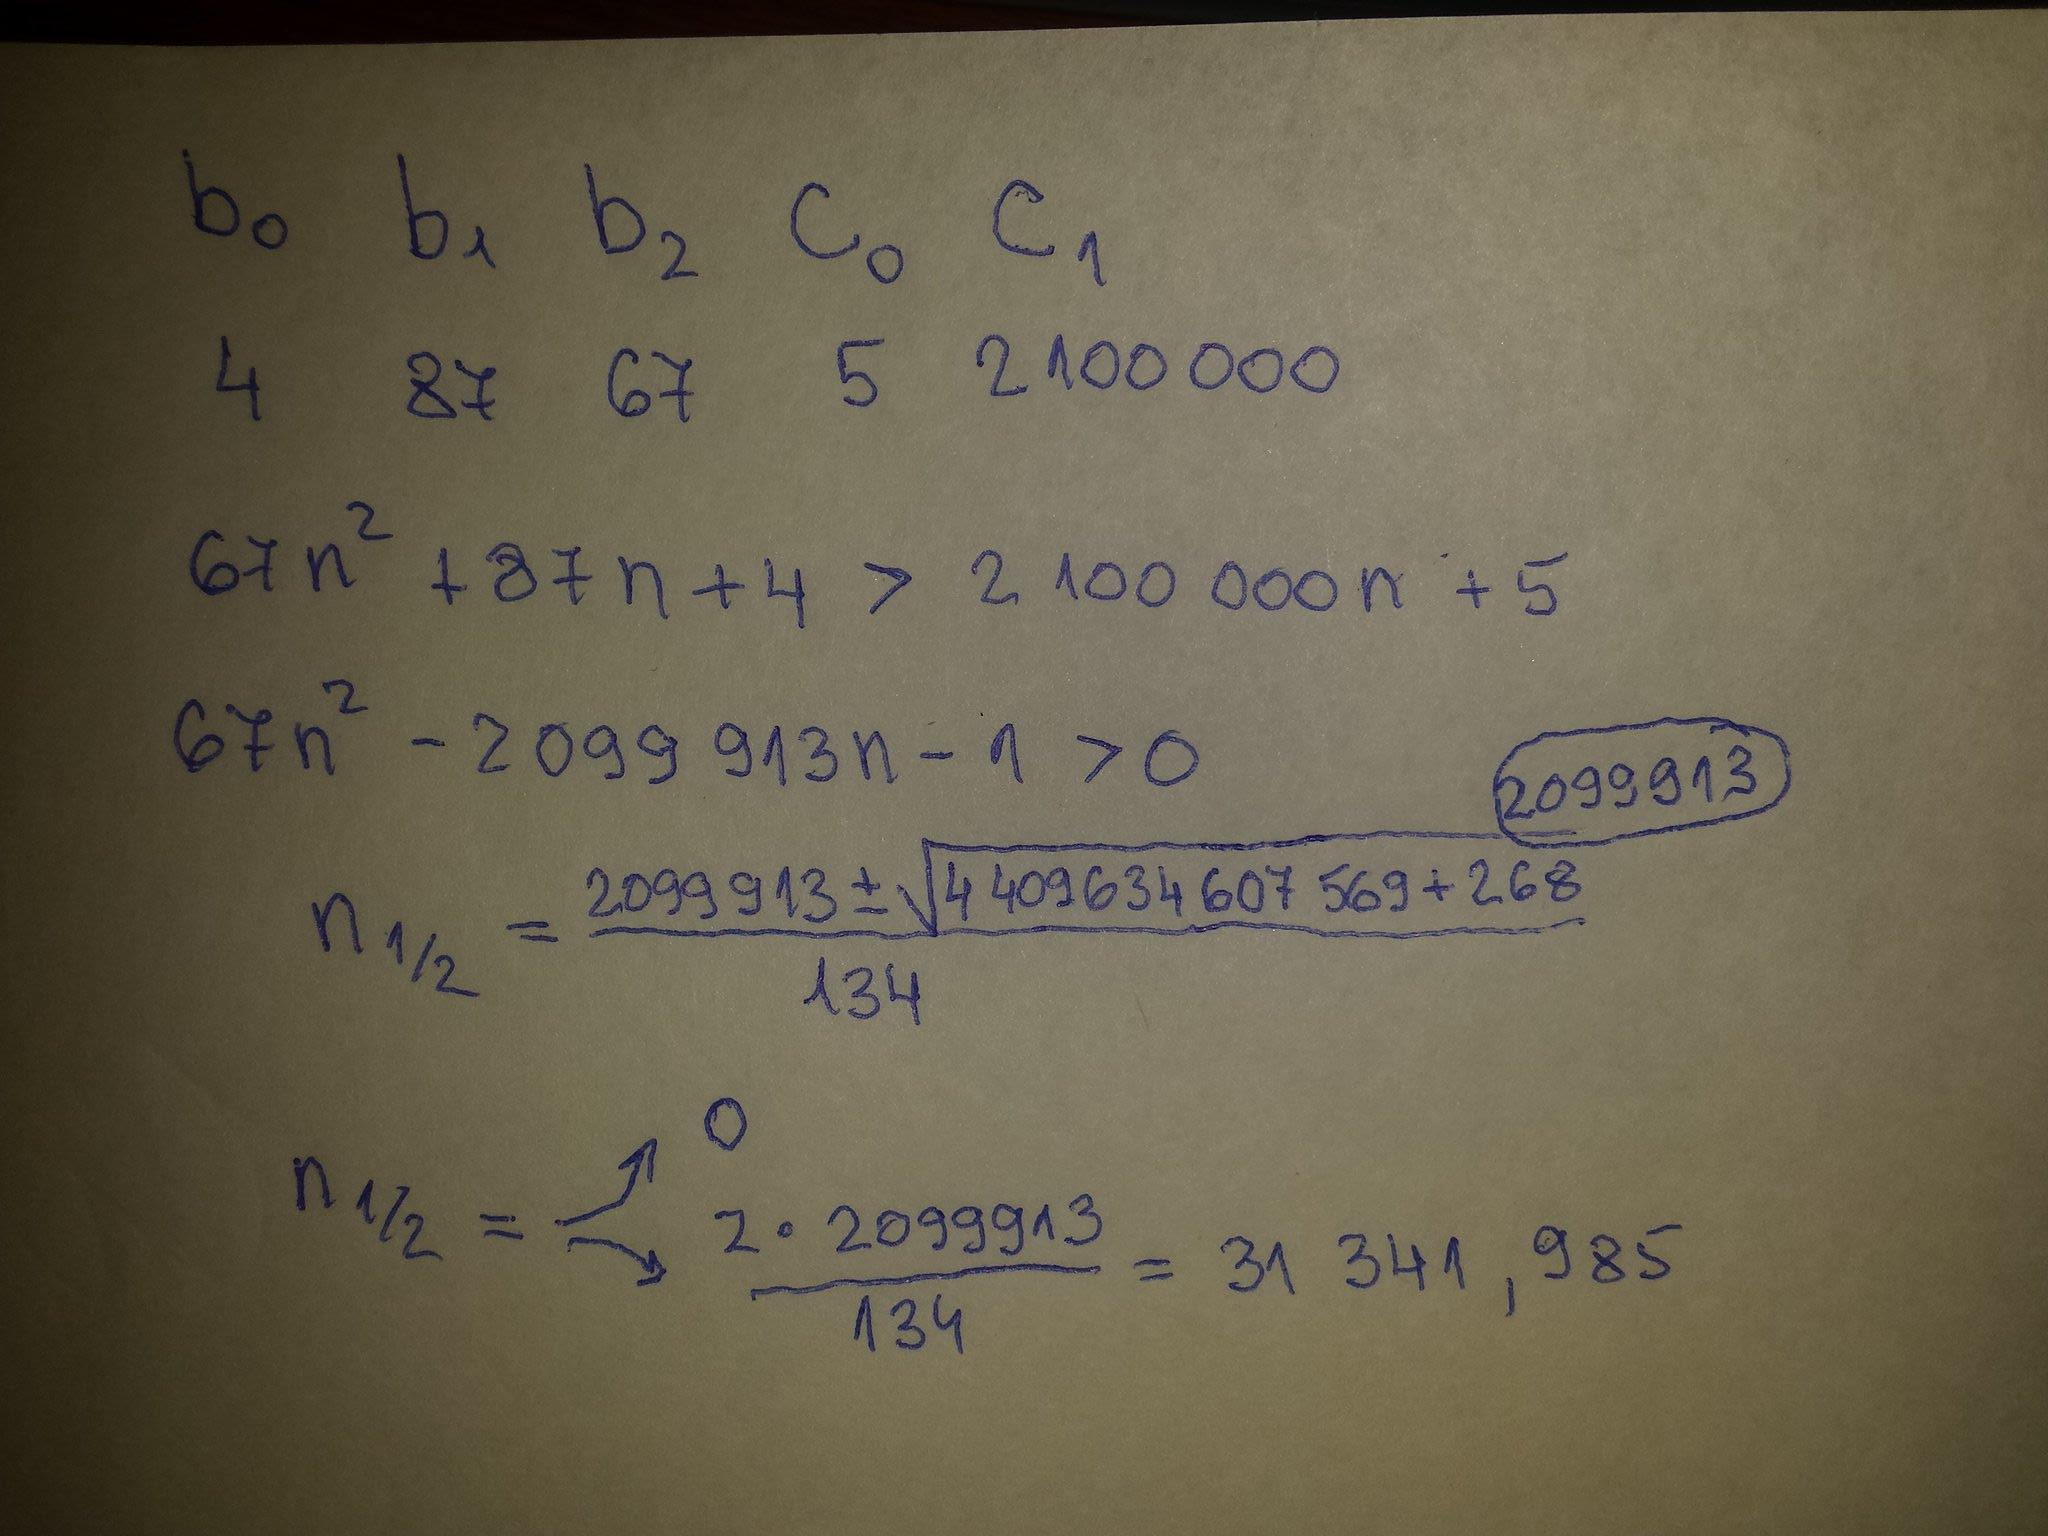 b₀ b₁ b₂ C₀ C₁
4 87 67 5 2 100 000
67n² + 87n + 4 > 2 100 000n + 5
67n² - 2 099 913n - 1 > 0
2099913
n₁/₂ = (2099 913 ± √(4 409 634 607 569 + 268)) / 134
0
n₁/₂ = (2 · 2099913) / 134 = 31 341,985